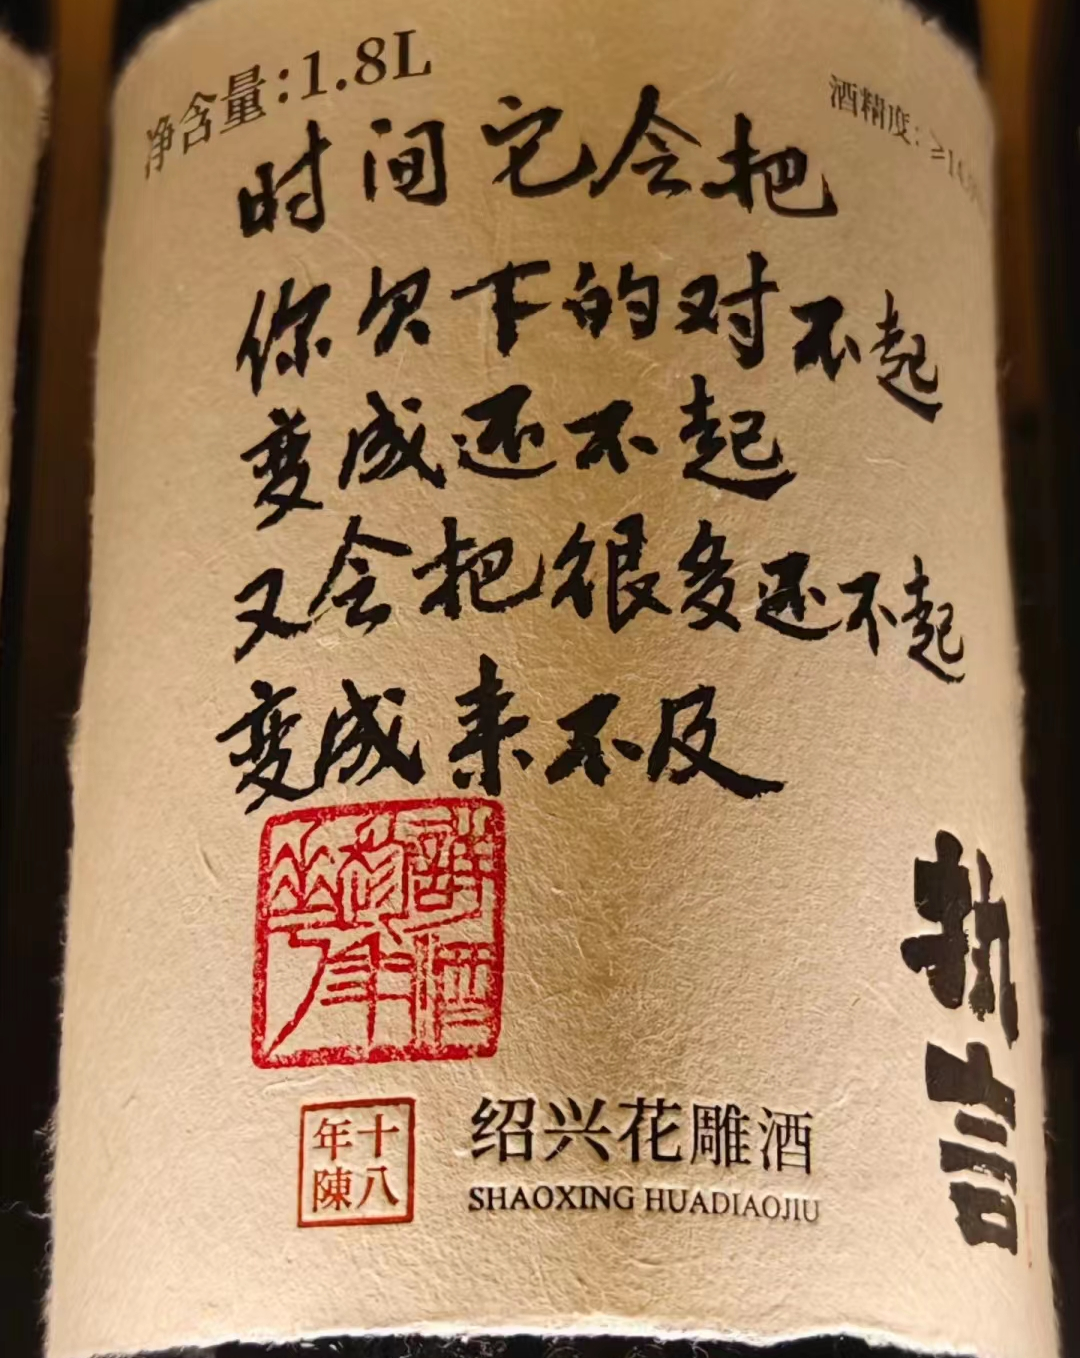 净含量：1.8L
酒精度：≥14.
时间它会把
你欠下的对不起
变成还不起
又会把很多还不起
变成来不及
执言
诗酒
年
十八
年陳
绍兴花雕酒
SHAOXING HUADIAOJIU